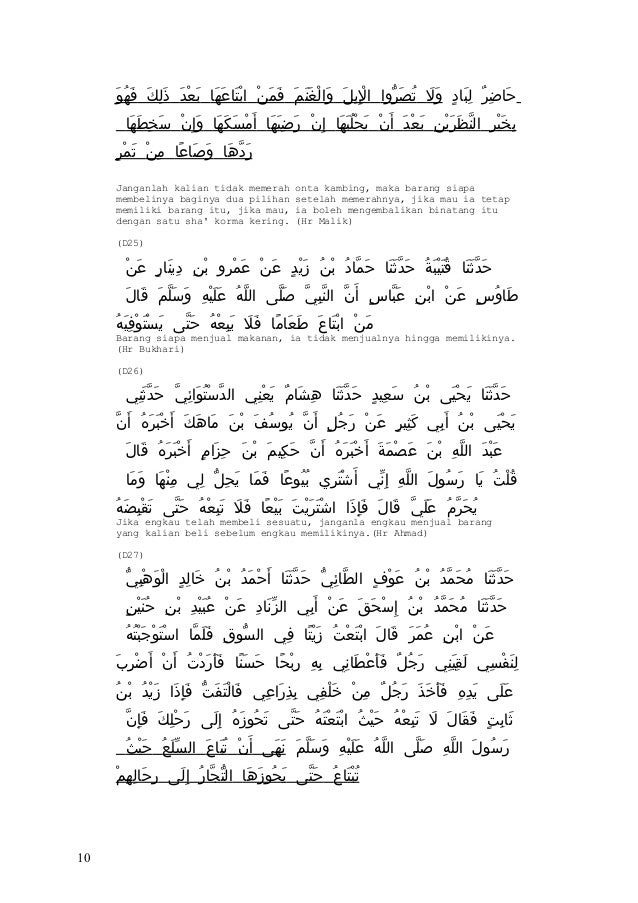 حَاضِرٌ لِبَادٍ وَلَا تُصَرُّوا الْإِبِلَ وَالْغَنَمَ فَمَنْ ابْتَاعَهَا بَعْدَ ذَلِكَ فَهُوَ
بِخَيْرِ النَّظَرَيْنِ بَعْدَ أَنْ يَحْلُبَهَا إِنْ رَضِيَهَا أَمْسَكَهَا وَإِنْ سَخِطَهَا
رَدَّهَا وَصَاعًا مِنْ تَمْرٍ
Janganlah kalian tidak memerah onta kambing, maka barang siapa
membelinya baginya dua pilihan setelah memerahnya, jika mau ia tetap
memiliki barang itu, jika mau, ia boleh mengembalikan binatang itu
dengan satu sha' korma kering. (Hr Malik)
(D25)
حَدَّثَنَا قُتَيْبَةُ حَدَّثَنَا حَمَّادُ بْنُ زَيْدٍ عَنْ عَمْرِو بْنِ دِينَارٍ عَنْ
طَاوُسٍ عَنْ ابْنِ عَبَّاسٍ أَنَّ النَّبِيَّ صَلَّى اللَّهُ عَلَيْهِ وَسَلَّمَ قَالَ
مَنْ ابْتَاعَ طَعَامًا فَلَا يَبِعْهُ حَتَّى يَسْتَوْفِيَهُ
Barang siapa menjual makanan, ia tidak menjualnya hingga memilikinya.
(Hr Bukhari)
(D26)
حَدَّثَنَا يَحْيَى بْنُ سَعِيدٍ حَدَّثَنَا هِشَامٌ يَعْنِي الدَّسْتُوَائِيَّ حَدَّثَنِي
يَحْيَى بْنُ أَبِي كَثِيرٍ عَنْ رَجُلٍ أَنَّ يُوسُفَ بْنَ مَاهَكَ أَخْبَرَهُ أَنَّ
عَبْدَ اللَّهِ بْنَ عَصْمَةَ أَخْبَرَهُ أَنَّ حَكِيمَ بْنَ حِزَامٍ أَخْبَرَهُ قَالَ
قُلْتُ يَا رَسُولَ اللَّهِ إِنِّي أَشْتَرِي بُيُوعًا فَمَا يَحِلُّ لِي مِنْهَا وَمَا
يُحَرَّمُ عَلَيَّ قَالَ فَإِذَا اشْتَرَيْتَ بَيْعًا فَلَا تَبِعْهُ حَتَّى تَقْبِضَهُ
Jika engkau telah membeli sesuatu, janganla engkau menjual barang
yang kalian beli sebelum engkau memilikinya.(Hr Ahmad)
(D27)
حَدَّثَنَا مُحَمَّدُ بْنُ عَوْفٍ الطَّائِيُّ حَدَّثَنَا أَحْمَدُ بْنُ خَالِدٍ الْوَهْبِيُّ
حَدَّثَنَا مُحَمَّدُ بْنُ إِسْحَقَ عَنْ أَبِي الزِّنَادِ عَنْ عُبَيْدِ بْنِ حُنَيْنٍ
عَنْ ابْنِ عُمَرَ قَالَ ابْتَعْتُ زَيْتًا فِي السُّوقِ فَلَمَّا اسْتَوْجَبْتُهُ
لِنَفْسِي لَقِيَنِي رَجُلٌ فَأَعْطَانِي بِهِ رِبْحًا حَسَنًا فَأَرَدْتُ أَنْ أَضْرِبَ
عَلَى يَدِهِ فَأَخَذَ رَجُلٌ مِنْ خَلْفِي بِذِرَاعِي فَالْتَفَتُّ فَإِذَا زَيْدُ بْنُ
ثَابِتٍ فَقَالَ لَا تَبِعْهُ حَيْثُ ابْتَعْتَهُ حَتَّى تَحُوزَهُ إِلَى رَحْلِكَ فَإِنَّ
رَسُولَ اللَّهِ صَلَّى اللَّهُ عَلَيْهِ وَسَلَّمَ نَهَى أَنْ تُبَاعَ السِّلَعُ حَيْثُ
تُبْتَاعُ حَتَّى يَحُوزَهَا التُّجَّارُ إِلَى رِحَالِهِمْ
10